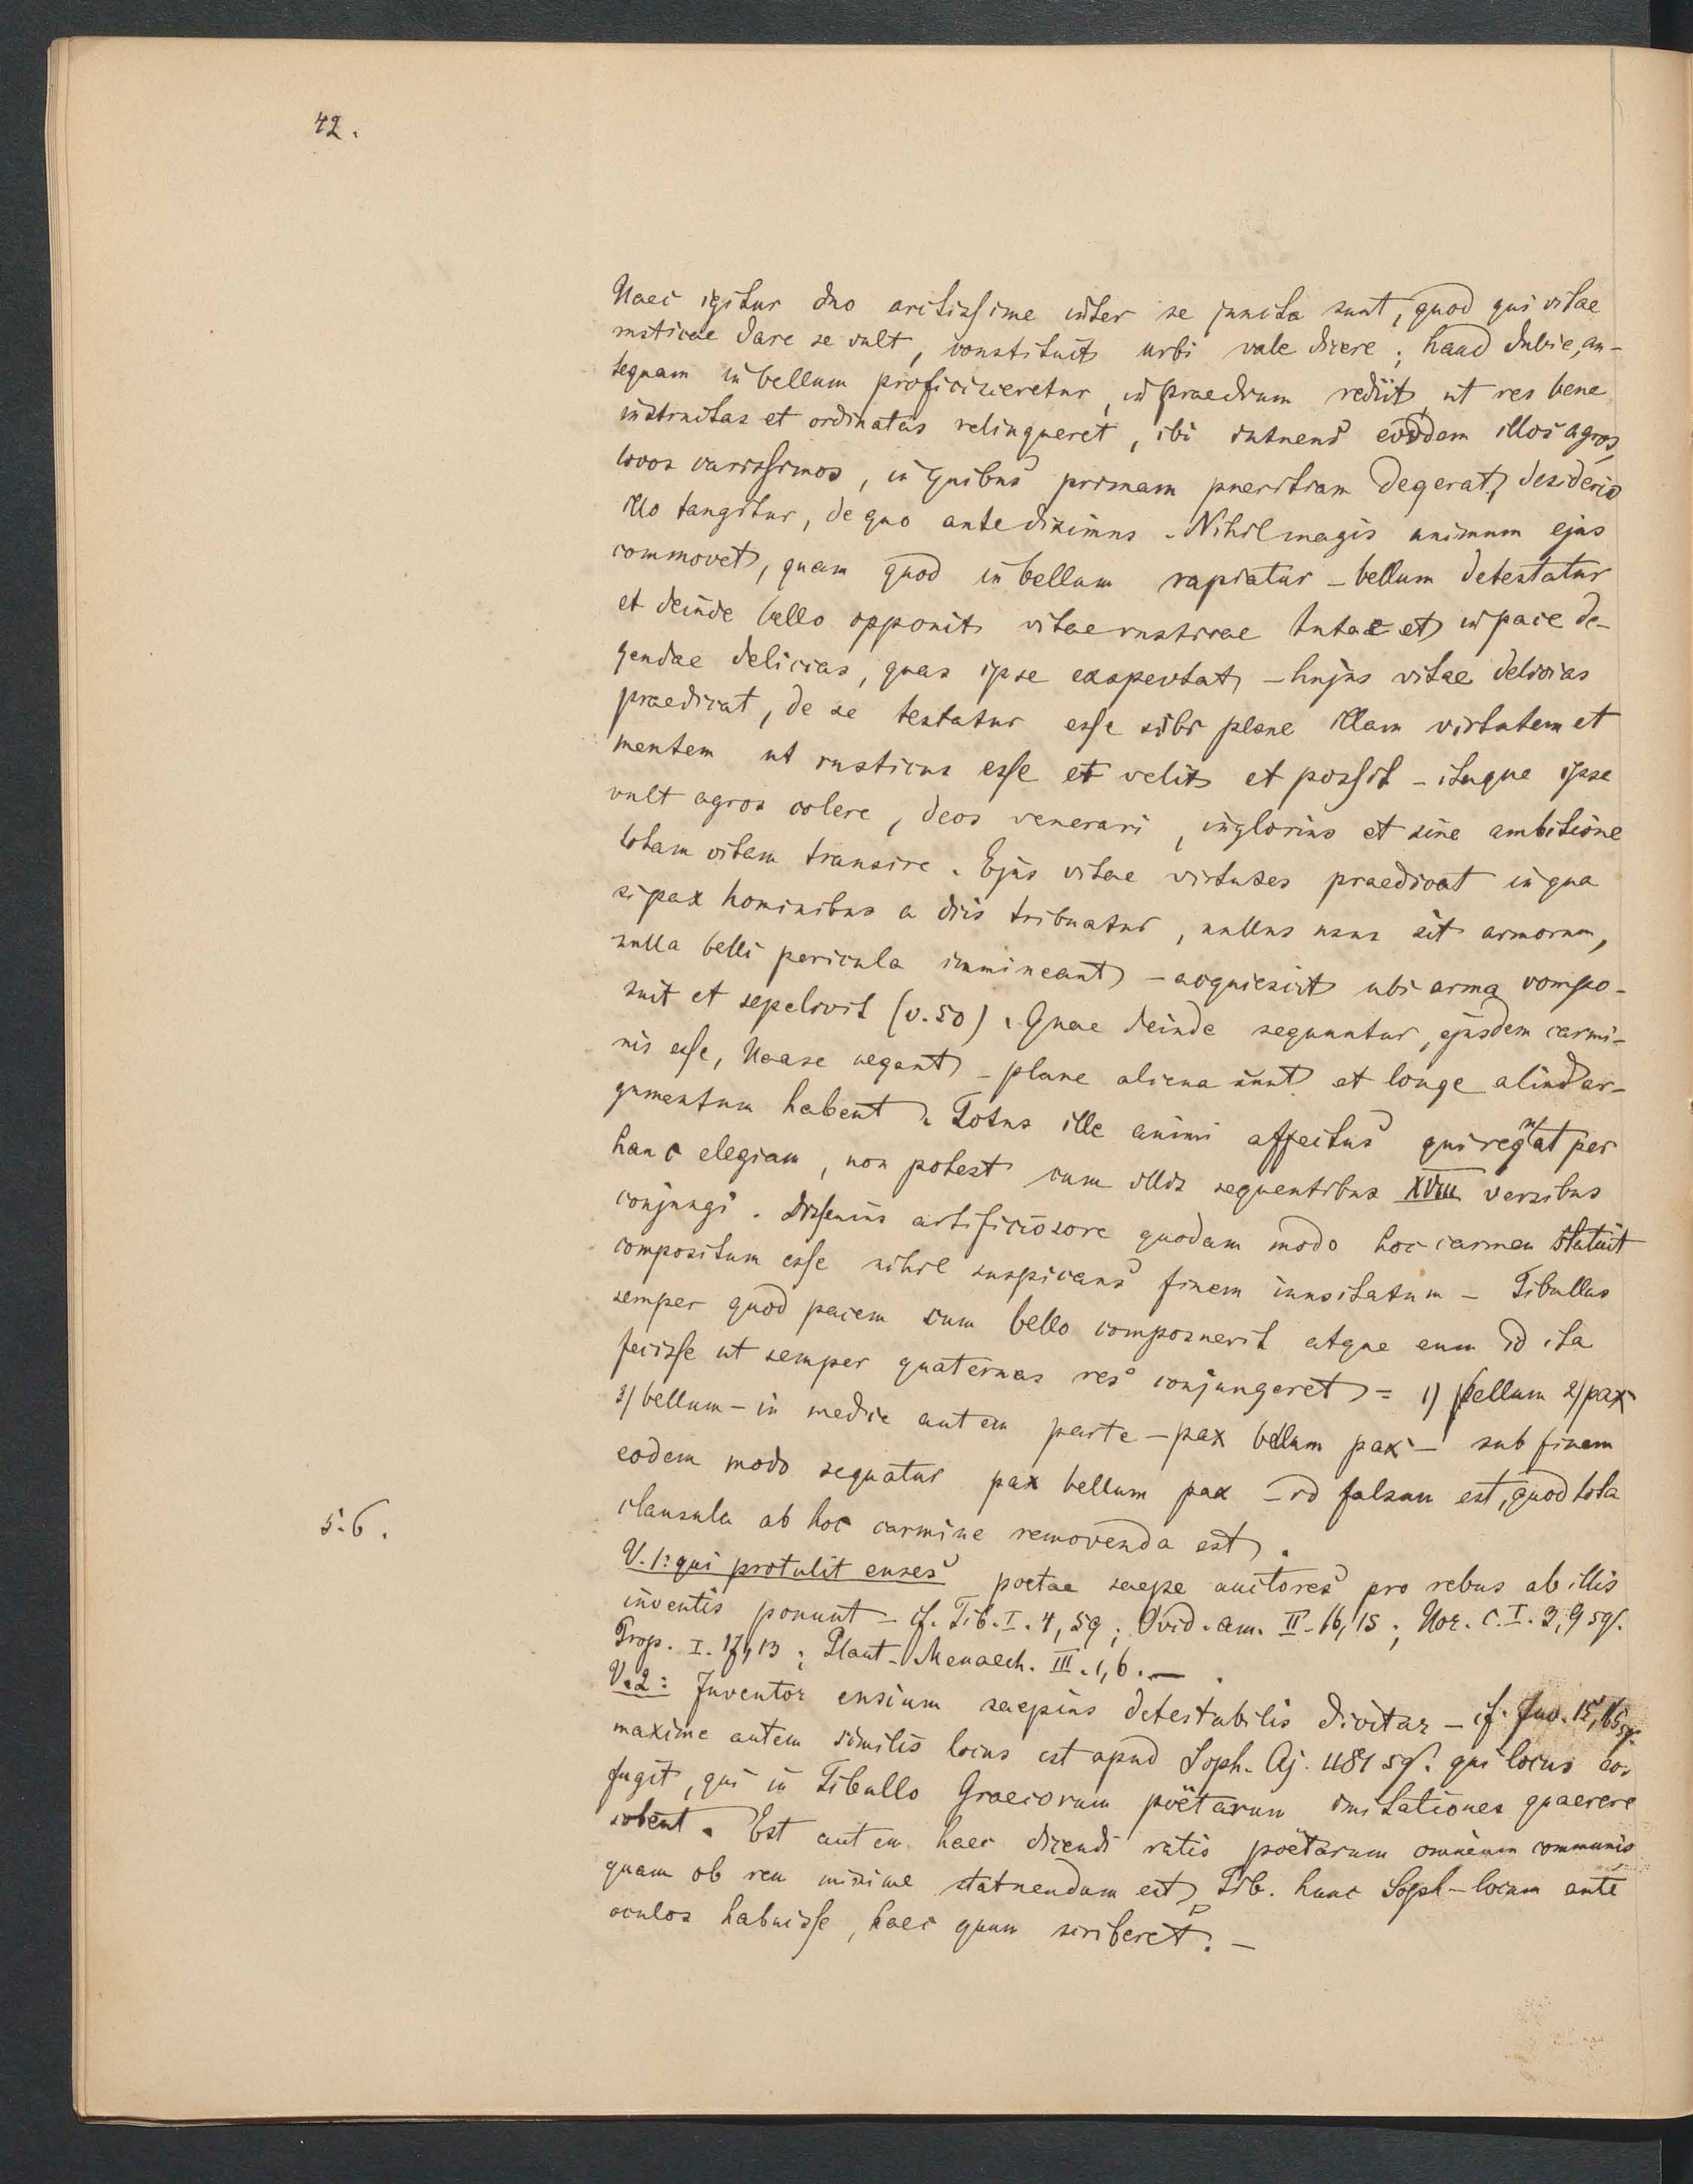 42.
Haec igitur duo arctissime inter se juncta sunt, quod qui vitae
rusticae dare se vult, constituit urbi vale dicere; haud dubie, an-
tequam in bellum proficisceretur, in praedium rediit, ut res bene
instructas et ordinatas relinqueret, ibi intuens eosdem illos agros,
locos carissimos, in quibus primam pueritiam degerat, desiderio
illo tangitur, de quo ante diximus. Nihil magis animum ejus
commovet, quam quod in bellum rapiatur – bellum detestatur
et deinde bello opponit vitae rusticae tutae et in pace de-
gendae delicias, quas ipse exspectat, – hujus vitae delicias
praedicat, de se testatur esse sibi plane illam virtutem et
mentem ut rusticus esse et velit et possit – itaque ipse
vult agros colere, deos venerari, inglorius et sine ambitione
totam vitam transire. Ejus vitae virtutes praedicat in qua
si pax hominibus a diis tribuatur, nullus usus sit armorum,
nulla belli pericula immineant, – acquiescit ubi arma compo-
suit et sepelivit (v. 50). Quae deinde sequuntur, ejusdem carmi-
nis esse, Haase negant – plane aliena sunt et longe aliud ar-
gumentum habent. Totus ille animi affectus qui regnat per
hanc elegiam, non potest cum illis sequentibus XVIII versibus
conjungi. Dissenius artificiosore quodam modo hoc carmen statuit
compositum esse nihil suspicans finem inusitatum – Tibullus
semper quod pacem cum bello composuerit atque eum id ita
fecisse ut semper quaternas res conjungeret = 1) bellum 2) pax
3) bellum – in media autem parte – pax bellum pax – sub finem
eodem modo sequatur pax bellum pax – id falsum est, quod tota
5.6.
clausula ab hoc carmine removenda est.
V. 1: qui protulit enses poetae saepe auctores pro rebus ab illis
inventis ponunt – cf. Tib. I. 4, 59; Ovid. am. II. 16, 15; Hor. C. I. 3, 9 sq.
Prop. I. 17, 13; Plaut. Menaech. III. 1, 6. –
V. 2: Inventor ensium saepius detestabilis dicitur – cf. Juv. 15, 165 sq.
maxime autem similis locus est apud Soph. Aj. 1181 sq. qui locus eos
fugit, qui in Tibullo Graecorum poëtarum imitationes quaerere
solent. Est autem haec dicendi ratio poëtarum omnium communis
quam ob rem minime statuendum est, Tib. hunc Soph – locum ante
oculos habuisse, haec quum scriberet. –